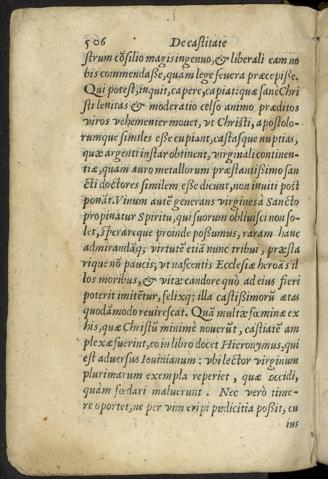 506 De castitate
strum cõsilio magis ingenuo, & liberali eam no
bis commendasse, quàm lege seuera præcepisse.
Qui potest, inquit, capere, capiat: quæ sanè Chri
sti lenitas & moderatio celso animo præditos
viros vehementer mouet, vt Christi, apostolo-
rumque similes esse cupiant, castasque nuptias,
quæ argenti instar obtinent, virginali continen-
tiæ, quam auro metallorum præstantissimo san
cti doctores similem esse dicunt, non inuiti post
ponãt. Vinum autẽ generans virgines à Sancto
propinatur Spiritu, qui suorum obliuisci non so-
let, sperareque proinde possumus, raram hanc
admirandãq; virtutẽ etiã nunc tribui, præsta
rique nõ paucis, vt nascentis Ecclesiæ heroãs il
los moribus, & vitæ candore quò ad eius fieri
poterit imitẽtur, felixq; illa castissimorũ ætas
quodãmodo reuirescat. Quã multæ fœminæ ex
his, quæ Christũ minimè nouerũt, castitatẽ am
plexæ fuerint, eo in libro docet Hieronymus, qui
est aduersus Iouinianum: vbi lector virginum
plurimarum exempla reperiet, quæ occidi,
quàm fœdari maluerunt. Nec verò time-
re oportet, ne per vim eripi pudicitia possit, cu
ius